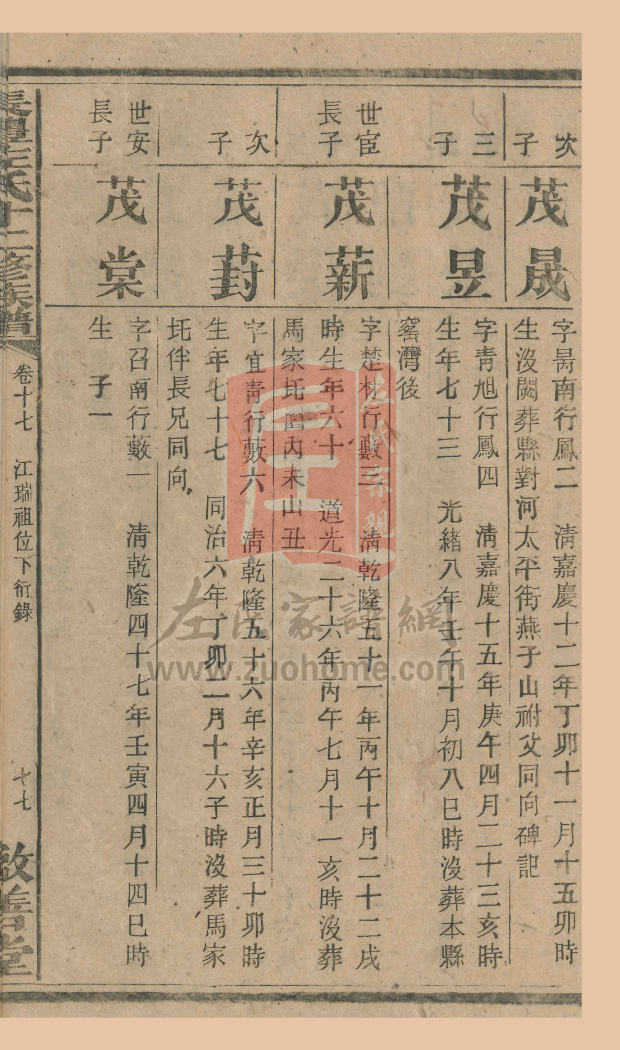 次子
茂晟
字昺南行鳳二　清嘉慶十二年丁卯十一月十五卯時
生沒闕葬縣對河太平街燕子山祔父同向碑記
三子
茂昱
字青旭行鳳四　清嘉慶十五年庚午四月二十三亥時
生年七十三　光緒八年壬午十月初八巳時沒葬本縣
窰灣後
世宦長子
茂薪
字楚材行藪三　清乾隆五十一年丙午十月二十二戌
時生年六十　道光二十六年丙午七月十一亥時沒葬
馬家坵圍內未山丑
次子
茂葑
字宜青行藪六　清乾隆五十六年辛亥正月三十卯時
生年七十七　同治六年丁卯二月十六子時沒葬馬家
坵伴長兄同向
世安長子
茂棠
字召南行藪一　清乾隆四十七年壬寅四月十四巳時
生　子一
左氏十二修族譜
卷十七　江瑞祖位下衍錄
七七
敦善堂
左氏家譜網
www.zuohome.com